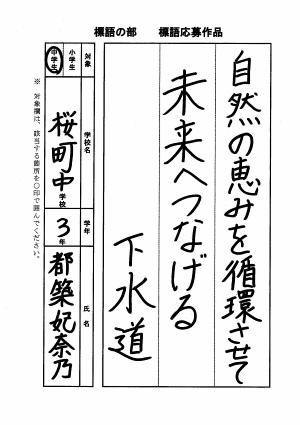 標語の部　標語応募作品
自然の恵みを循環させて
未来へつなげる
下水道
対象
小学生
中学生
学校名
桜町中学校
学年
3年
氏名
都築妃奈乃
※ 対象欄は、該当する箇所を○印で囲んでください。